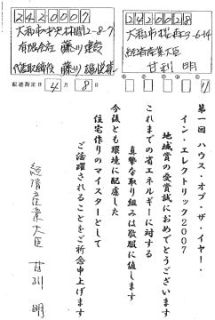 2420007
大和市中央林間2-8-7
有限会社 藤川建設
代表取締役 藤川
2420028
大和市桜森3-6-14
経済産業大臣
甘利 明
配達指定日 4月8日
第一回 ハウス・オブ・ザ・イヤー・
イン・エレクトリック2007
地域賞の受賞誠におめでとうございます
これまでの省エネルギーに対する
真摯な取り組みは敬服に値します
今後とも環境に配慮した
住宅作りのマイスターとして
ご活躍されることをご祈念申上げます
経済産業大臣 甘利 明